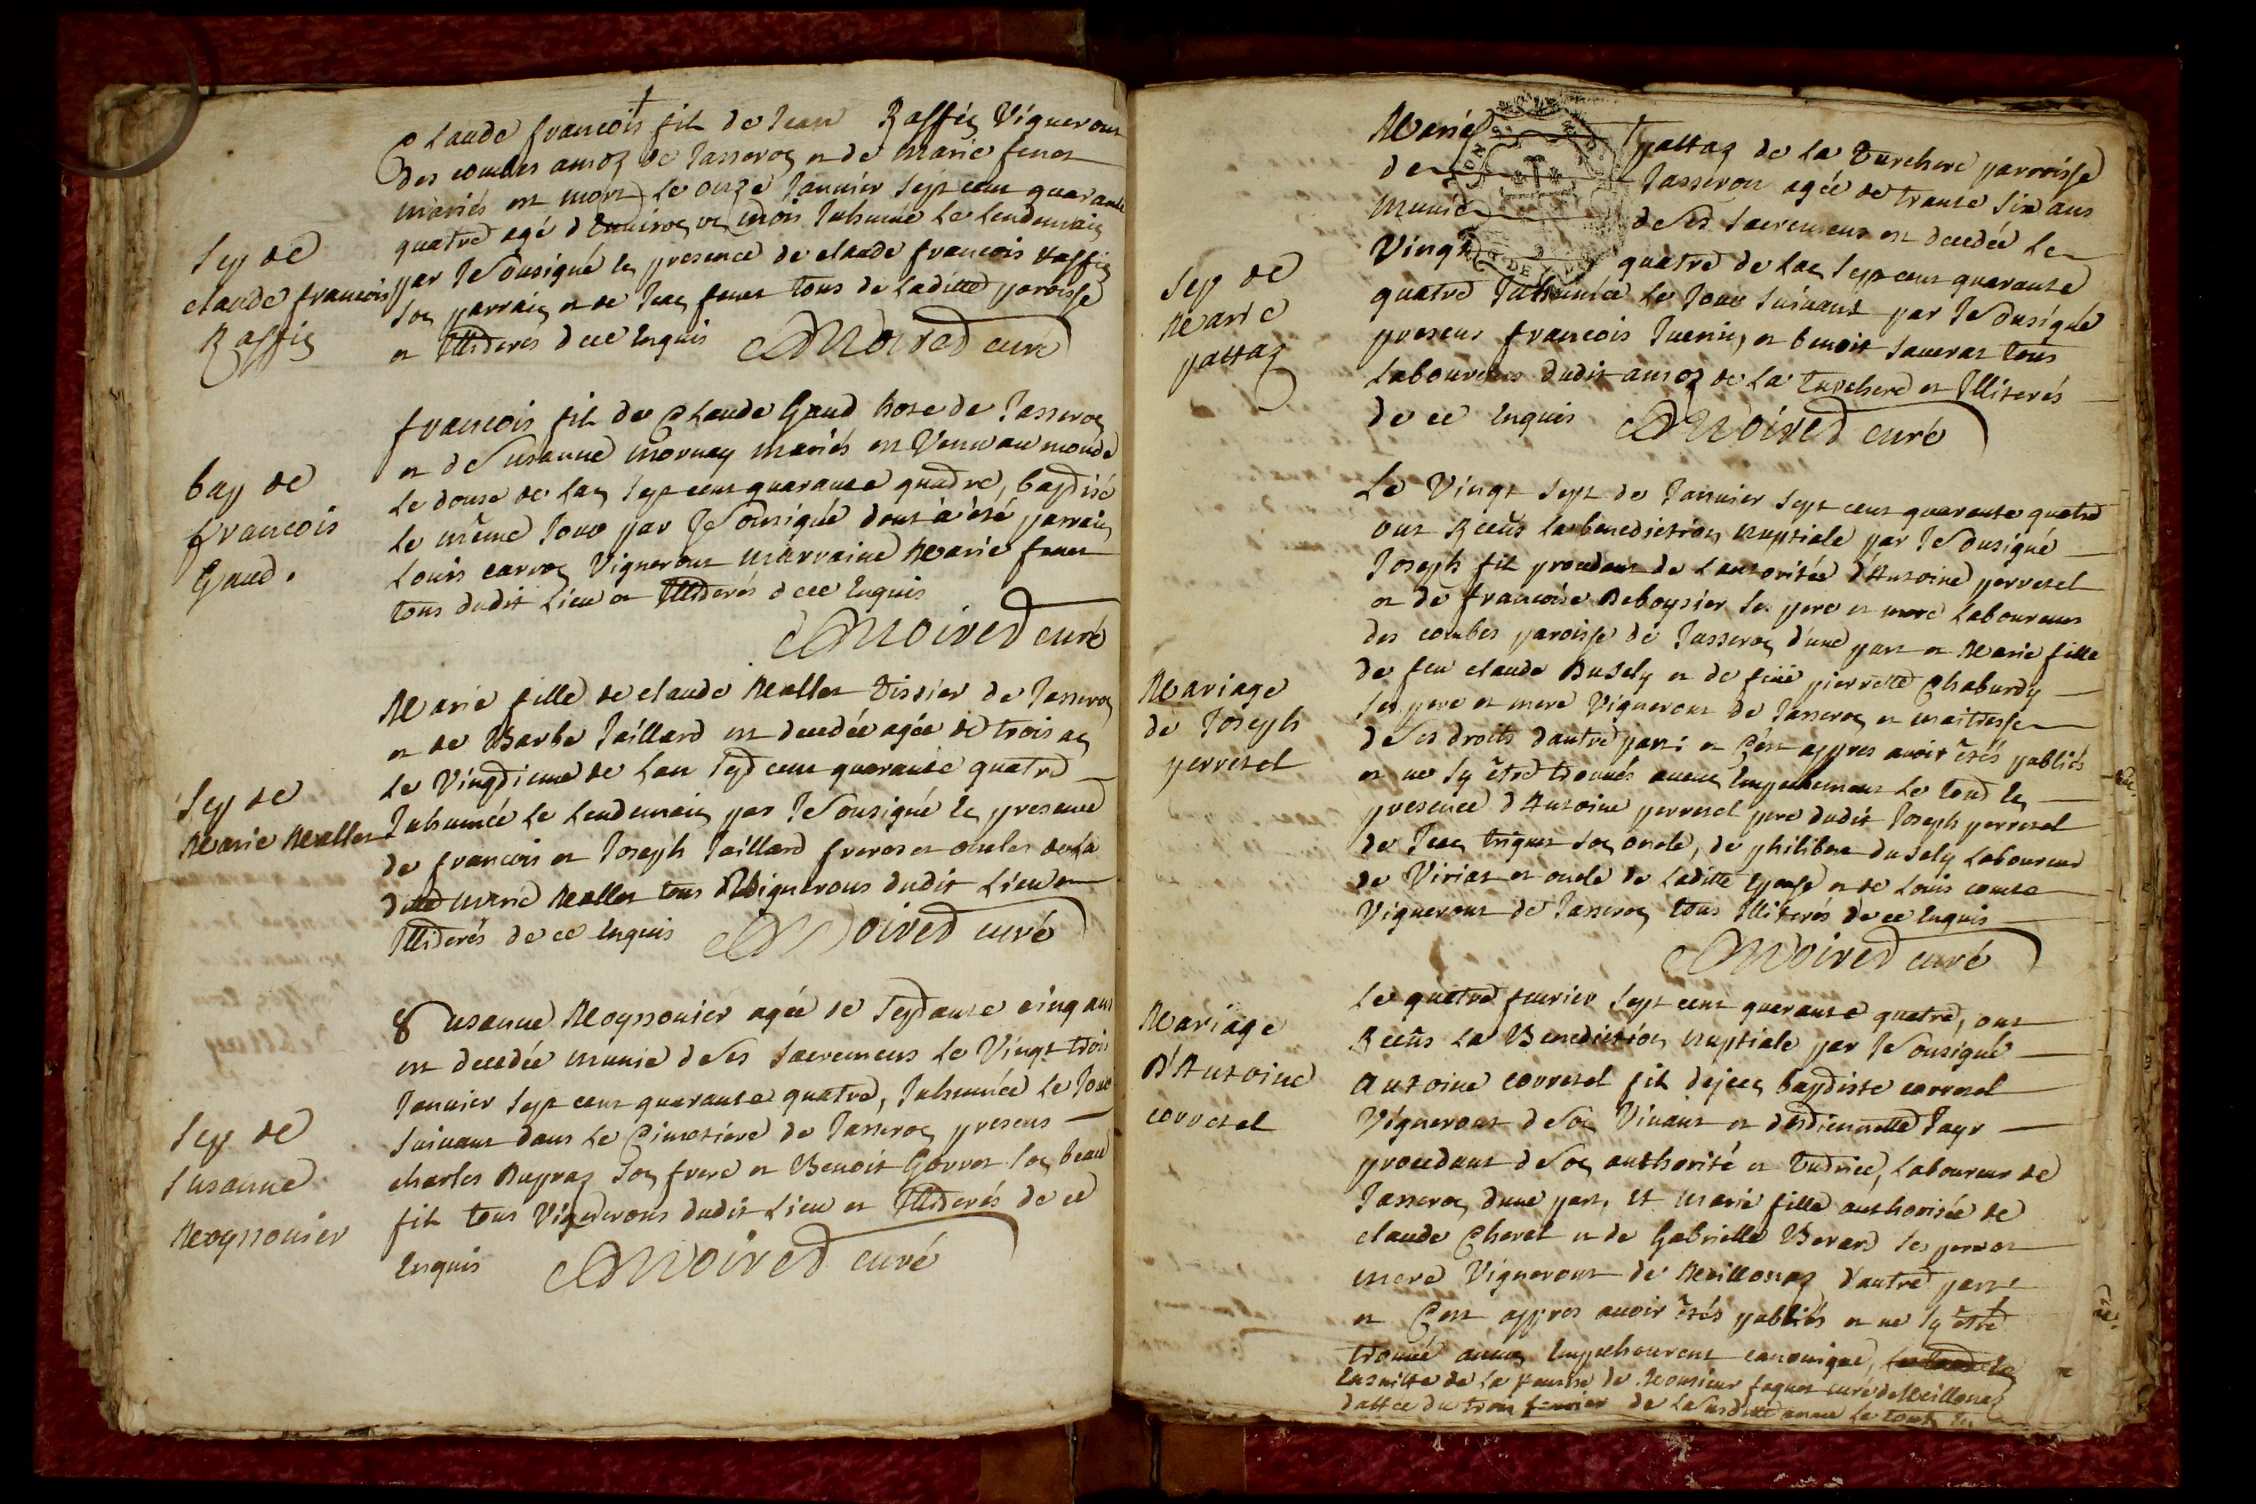 Claude francois fils de Jean Raffin Vigneront
des combes amoz de Jasseron et de Marie feuet
mariés est mort le onze Janvier sept cent quarante
quatre agé d'Environ un mois Inhumée Le Lendemain
par Je Sousigné en presence de claude francois Raffin
son parrain et de Jean feuet tous de Laditte paroisse
et Illiderés de ce Enquis Moiret curé
Sep de
claude francois
Raffin
francois fils de Claude Gaud hote de Jasseron
et de Susanne Mornay mariés est Venu au monde
Le douse de Lan sept cent quarante quatre, baptisé
Le même Jour par Je Sousigné dont à été parrain
Louis carron Vigneront marraine Marie feuet
tous dudit Lieu et Illiderés de ce Enquis
Moiret curé
bap de
francois
Gaud.
Marie fille de claude Mallet Tissier de Jasseron
et de Barbe Jaillard est decedée agée de trois an
Le Vingtieme de Lan sept cent quarante quatre
Inhumée Le Lendemain par Je Sousigné en presence
de francois et Joseph Jaillard freres et oncles de La
ditte Marie Mallet tous Vignerons dudit Lieu et
Illiderés de ce Enquis Moiret curé
Sep de
Marie Mallet
Susanne Moyssonier agée de septante cinq ans
est decedée munie de Ses Sacremens Le Vingt trois
Janvier sept cent quarante quatre, Inhumée Le Jour
suivant dans Le Cimetiere de Jasseron presens
charles Dupraz son frere et Benoit Gorret son beau
fils tous Vignerons dudit Lieu et Illiderés de ce
Enquis Moiret curé
Sep de
Susanne
Moyssonier
Marie pattaz de La Turchere parroisse
de Jasseron agée de trante six ans
munie de Ses Sacremens est decedée Le
Vingt quatre de Lan sept cent quarante
quatre Inhumée Le Jour suivant par Je Sousigné
presens francois Juenin, et benoit Saverat tous
Laboureurs dudit amoz de La Turchere et Illiterés
de ce Enquis Moiret curé
Sep de
Marie
pattaz
Le Vingt sept de Janvier sept cent quarante quatre
ont Reçus la benediction nuptiale par Je Sousigné
Joseph fils procedant de Lautoritée d'Antoine perretel
et de francoise Deboysier Ses pere et mere Laboureurs
des combes paroisse de Jasseron d'une part et Marie fille
de feu claude Dusely et de feüe pierrette Chaburdy
Ses pere et mere Vignerons de Jasseron et maitresse
de Ses droits dautre part; et C'est appres avoir étés publiés
et ne Sy être trouvés aucun Empechement Le tout En
presence d'Antoine perretel pere dudit Joseph perretel
de Jean triquet Son oncle, de philibert dusely Laboureur
de Viriat et oncle de Laditte Epouse et de Louis comte
Vigneront de Jasseron tous Illiterés de ce Enquis
Moiret curé
Mariage
de Joseph
perretel
Le quatre fevrier sept cent quarante quatre, ont
Reçus La Benediction nuptiale par Je Sousigné
Antoine corretel fils de jean baptiste corretel
Vigneront de Son Vivant et d'estiennette Jayr
procedant de Son authorité et tudrice, Laboureur de
Jasseron dune part, Et Marie fille authorisée de
claude Chevel et de Gabrielle Berard Ses pere et
mere Vigneront de Meillonaz d'autre part
et C'est appres avoir étés publiés et ne Sy être
trouvé aucun Empechement canonique,
Ensuitte de La remise de Monsieur faguet curé de Meillonaz
dattée du trois fevrier de La susditte année Le tout En
Mariage
d'Antoine
corretel